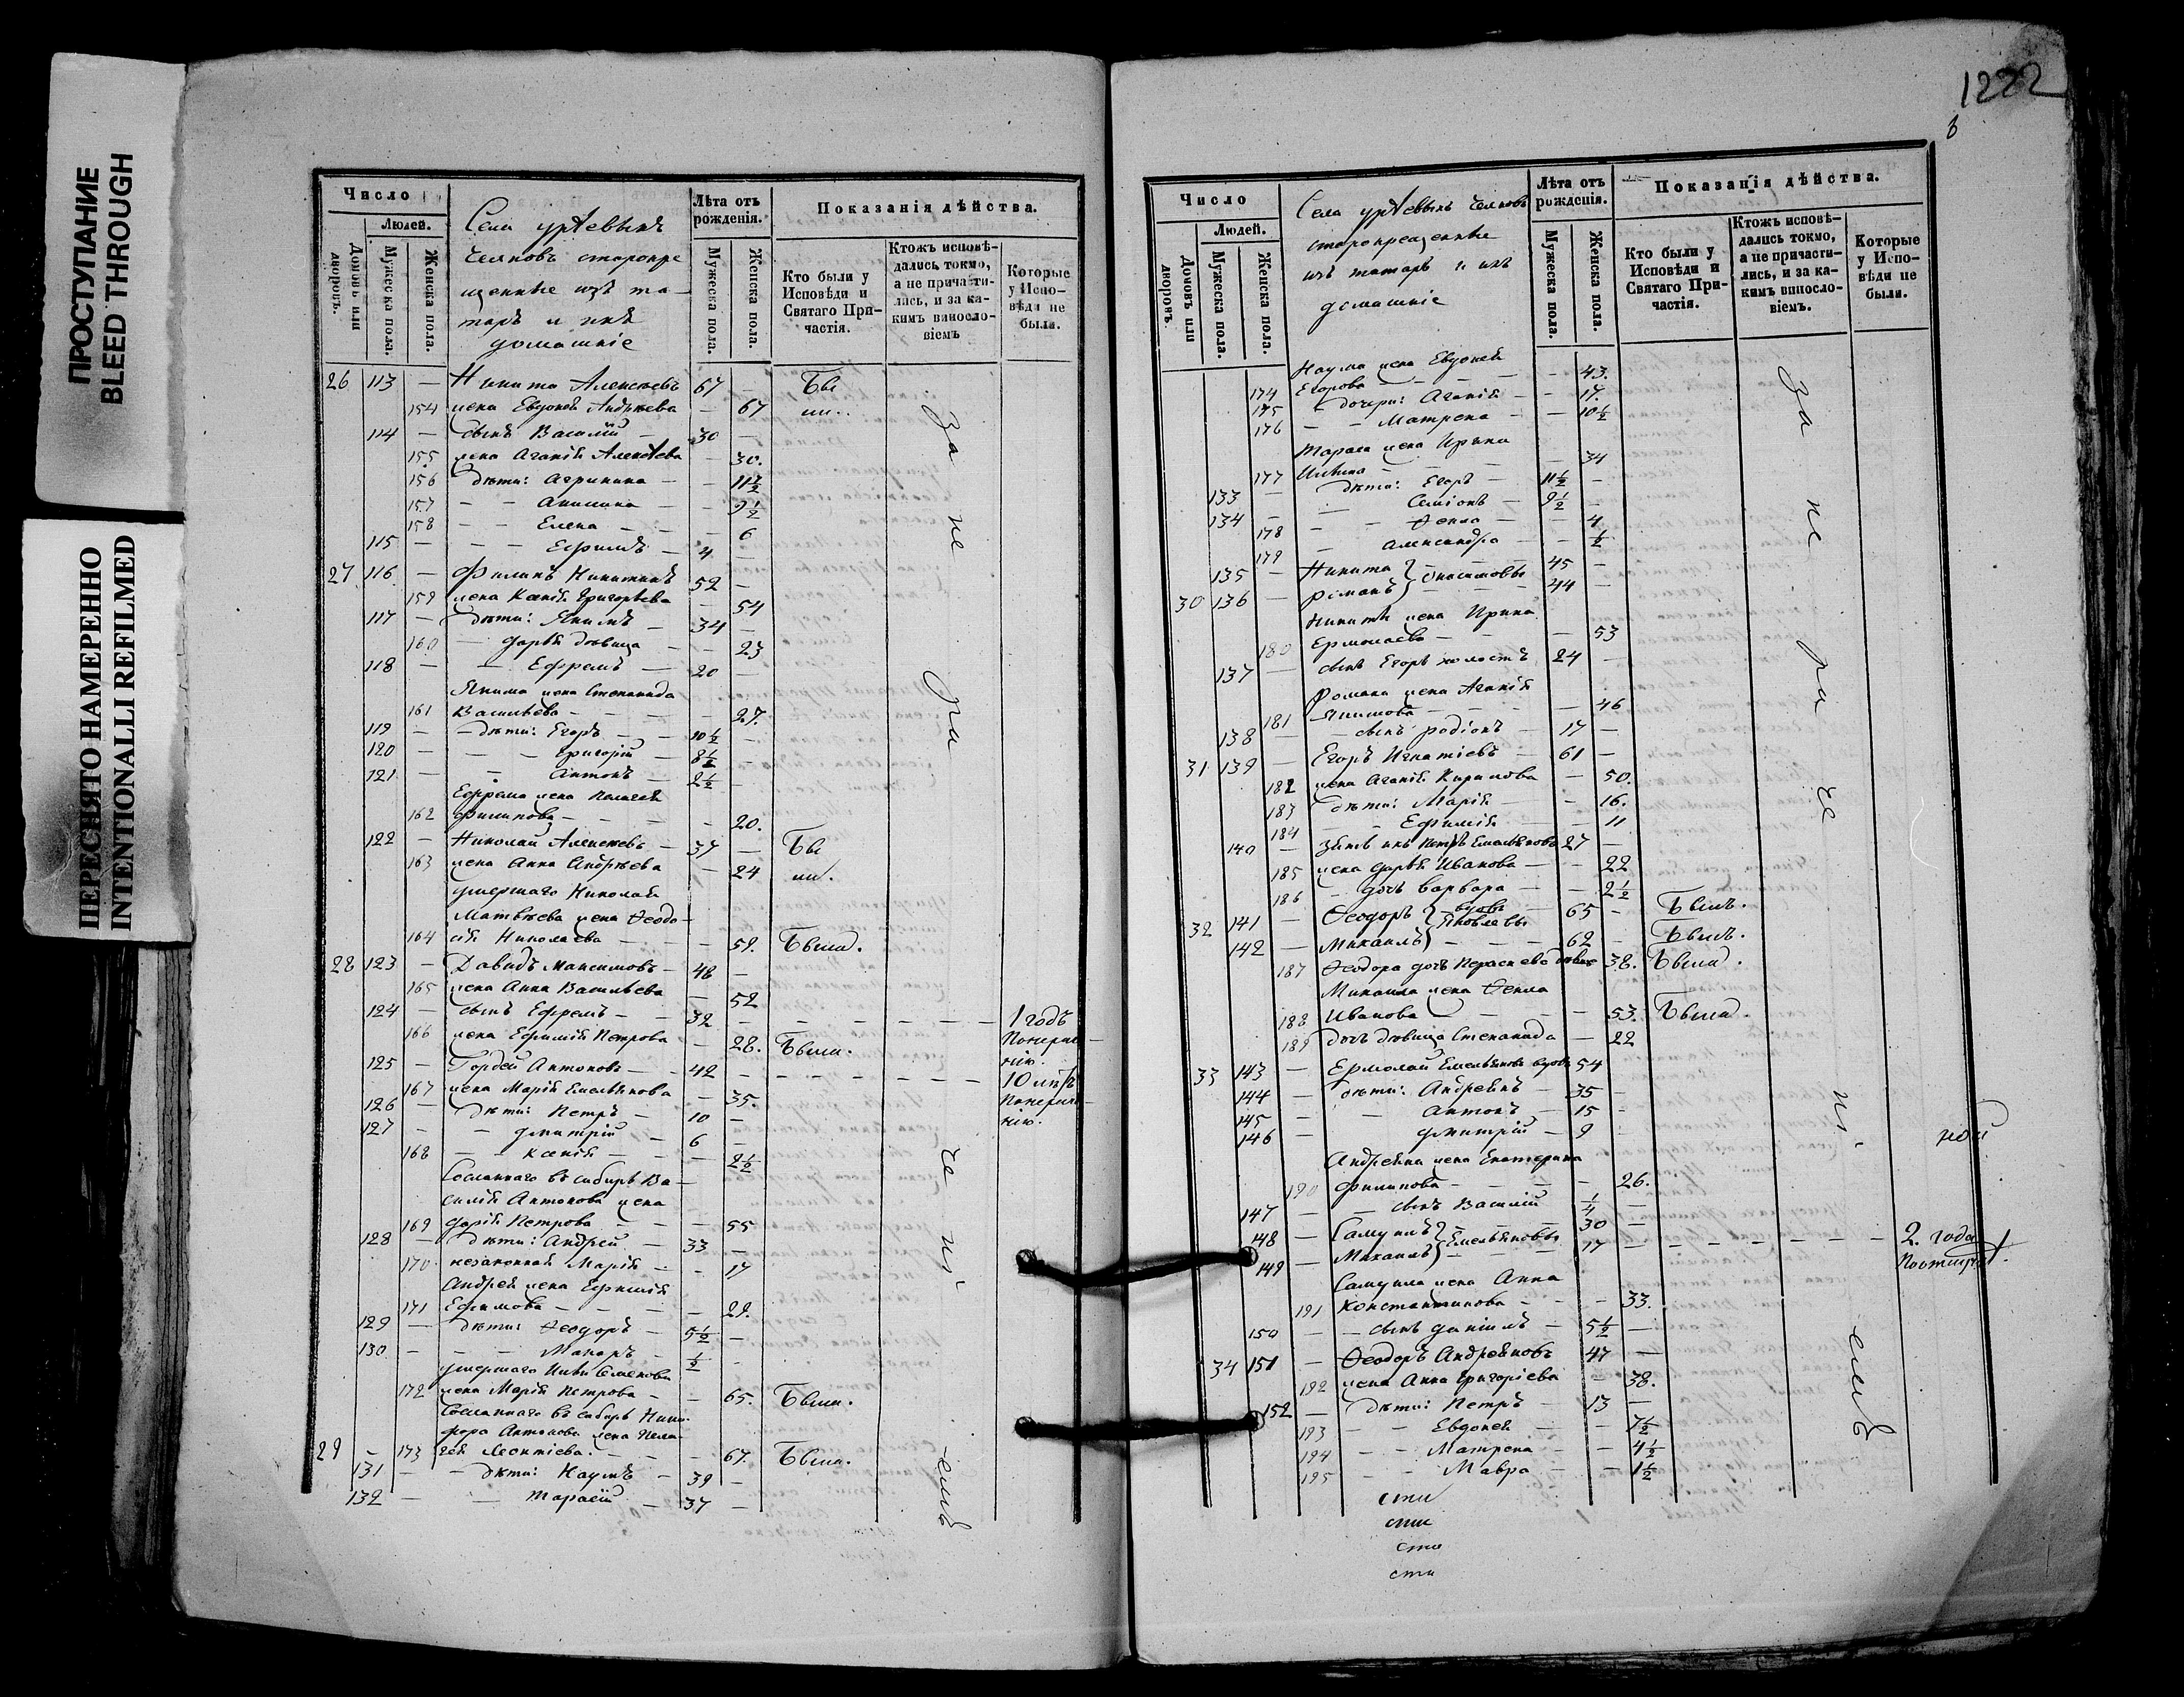 ПРОСТУПАНИЕ
BLEED THROUGH
ПЕРЕСНЯТО НАМЕРЕННО
INTENTIONALLI REFILMED
Число
Людей.
Домовъ или дворовъ.
Мужеска пола.
Женска пола.
Села
Челновъ старокре
щенные изъ та-
таръ и ихъ
домашніе
Лѣта отъ рожденія.
Мужеска пола.
Женска пола.
Показанія дѣйства.
Кто были у Исповѣди и Святаго Причастія.
Ктожъ исповѣдались токмо, а не причастились, и за какимъ винословіемъ
Которые у Исповѣди не были.
26 113 — Никита Алексѣевъ 67 — Бы
154 жена Евдокія Андрѣева — 67 ли.
114 — сынъ Василій 30 —
155 жена Агафія Алексѣева — 30.
156 дѣти: Агрипина — — 11½
157 — — Акилина — — 9½
158 — — Елена — — 6
115 — — — Ефимъ — 4 —
27 116 — Филипъ Никитинъ 52 —
159 жена Ксенія Григорьева — 54
117 — дѣти: Якимъ — 34 —
160 — Дарья дѣвица — — 23
118 — — Ефремъ — 20 —
Якима жена Степанида
161 Васильева — — — — 27.
119 — — дѣти: Егоръ — — 10½ —
120 — — — Григорій — 8½ —
121 — — Антонъ — 2½ —
Ефрема жена Пелагея
162 Филипова — — — — 20.
122 — Николай Алексѣевъ — 37 — Бы
163 жена Анна Андрѣева — 24 ли.
умершаго Николая
Матвѣева жена Ѳеодо-
164 сія Николаева — — — 59. Была.
28 123 — Давидъ Максимовъ — 48 —
165 жена Анна Васильева — 52
124 — сынъ Ефремъ — — 32 — — — — — — — 1 годъ
166 жена Ефимія Петрова — 28. Была. Понерад-
нію.
125 — Гордей Антоновъ — — 42 — — — — — — — 10 лѣтъ
167 жена Марія Емельянова — 35. Понерад-
126 — дѣти: Петръ — 10 — нію.
127 — — Дмитрій — 6 —
168 — — Ксенія — — — 2½
Сосланнаго въ сибирь Ва-
силія Антонова жена
169 Дарія Петрова — — — 55
128 — дѣти: Андрей — 33 —
170 незаконная Марія — — 17
Андрея жена Ефимія
171 Ефимова — — — — 29.
129 — дѣти: Ѳеодоръ — 5½ —
130 — — — Макаръ — ½ —
умершаго Семенова
172 жена Марія Петрова — — 65. Была.
Сосланнаго въ сибирь Ники-
фора Антонова жена Пела-
29 — 173 гея Леонтіева — — — 67. Была.
131 — — дѣти: Наумъ — 39 —
132 — — Тарасій — 37 —
за не при че ні емъ
1222
Число
Людей.
Домовъ или дворовъ.
Мужеска пола.
Женска пола.
Села Челновъ
старокрещенные
изъ татаръ и ихъ
домашніе
Лѣта отъ рожденія.
Мужеска пола.
Женска пола.
Показанія дѣйства.
Кто были у Исповѣди и Святаго Причастія.
Ктожъ исповѣдались токмо, а не причастились, и за какимъ винословіемъ.
Которые у Исповѣди не были.
Наума жена Евдокія
174 Егорова — — — — 43.
175 — дочери: Агафія — — 17.
176 — — Матрена — — 10½
Тараса жена Ирина
177 Ильина — — — — 34
133 — дѣти: Егоръ — 11½ —
134 — — Семіонъ — 9½ —
178 — — Ѳекла — — 4
179 — Александра — — ½
135 — Никита } Онисимовы 45 —
30 136 — Романъ } — — 44 —
Никиты жена Ирина
180 Ермолаева — — — 53
137 — сынъ Егоръ холостъ 24 —
Романа жена Агафія
181 Якимова — — — — 46
138 — — сынъ Родіонъ — 17 —
31 139 — Егоръ Игнатіевъ — 61 —
182 жена Агафія Кирилова — 50.
183 дѣти: Марія — — 16.
184 — — Ефимія — — 11
140 — Зять ихъ Петръ Емельяновъ 27 —
185 жена Дарья Иванова — — 22
186 — дочь Варвара — — 2½
32 141 — Ѳеодоръ } вдовъ Яковлевы 65 — Былъ.
142 — Михаилъ } — — 62 — Былъ.
187 Ѳеодора дочь Параскева дѣвица 38. Была.
Михаила жена Ѳекла
188 Иванова — — — 53. Была.
189 дочь дѣвица Степанида — 22
33 143 — Ермолай Емельяновъ вдовъ 54
144 — дѣти: Андреянъ — 35 —
145 — — Антонъ — 15 —
146 — Дмитрій — 9 —
Андреяна жена Екатерина
190 Филипова — — — — 26.
147 — — сынъ Василій ¼ —
148 — Самуилъ } Емельяновы 30 —
149 — Михаилъ } — — 17 — — — — — — — 2. года
Самуила жена Анна
191 Константинова — — — 33.
150 — — сынъ Даніилъ — 5½ —
34 151 — Ѳеодоръ Андреяновъ 47 —
192 жена Анна Григоріева — 38.
152 — дѣти: Петръ — 13 —
193 — — Евдокея — — 7½
194 — — Матрена — — 4½
195 — — Мавра — — 1½
за не ри че ні емъ
сти
сти
сти
сти